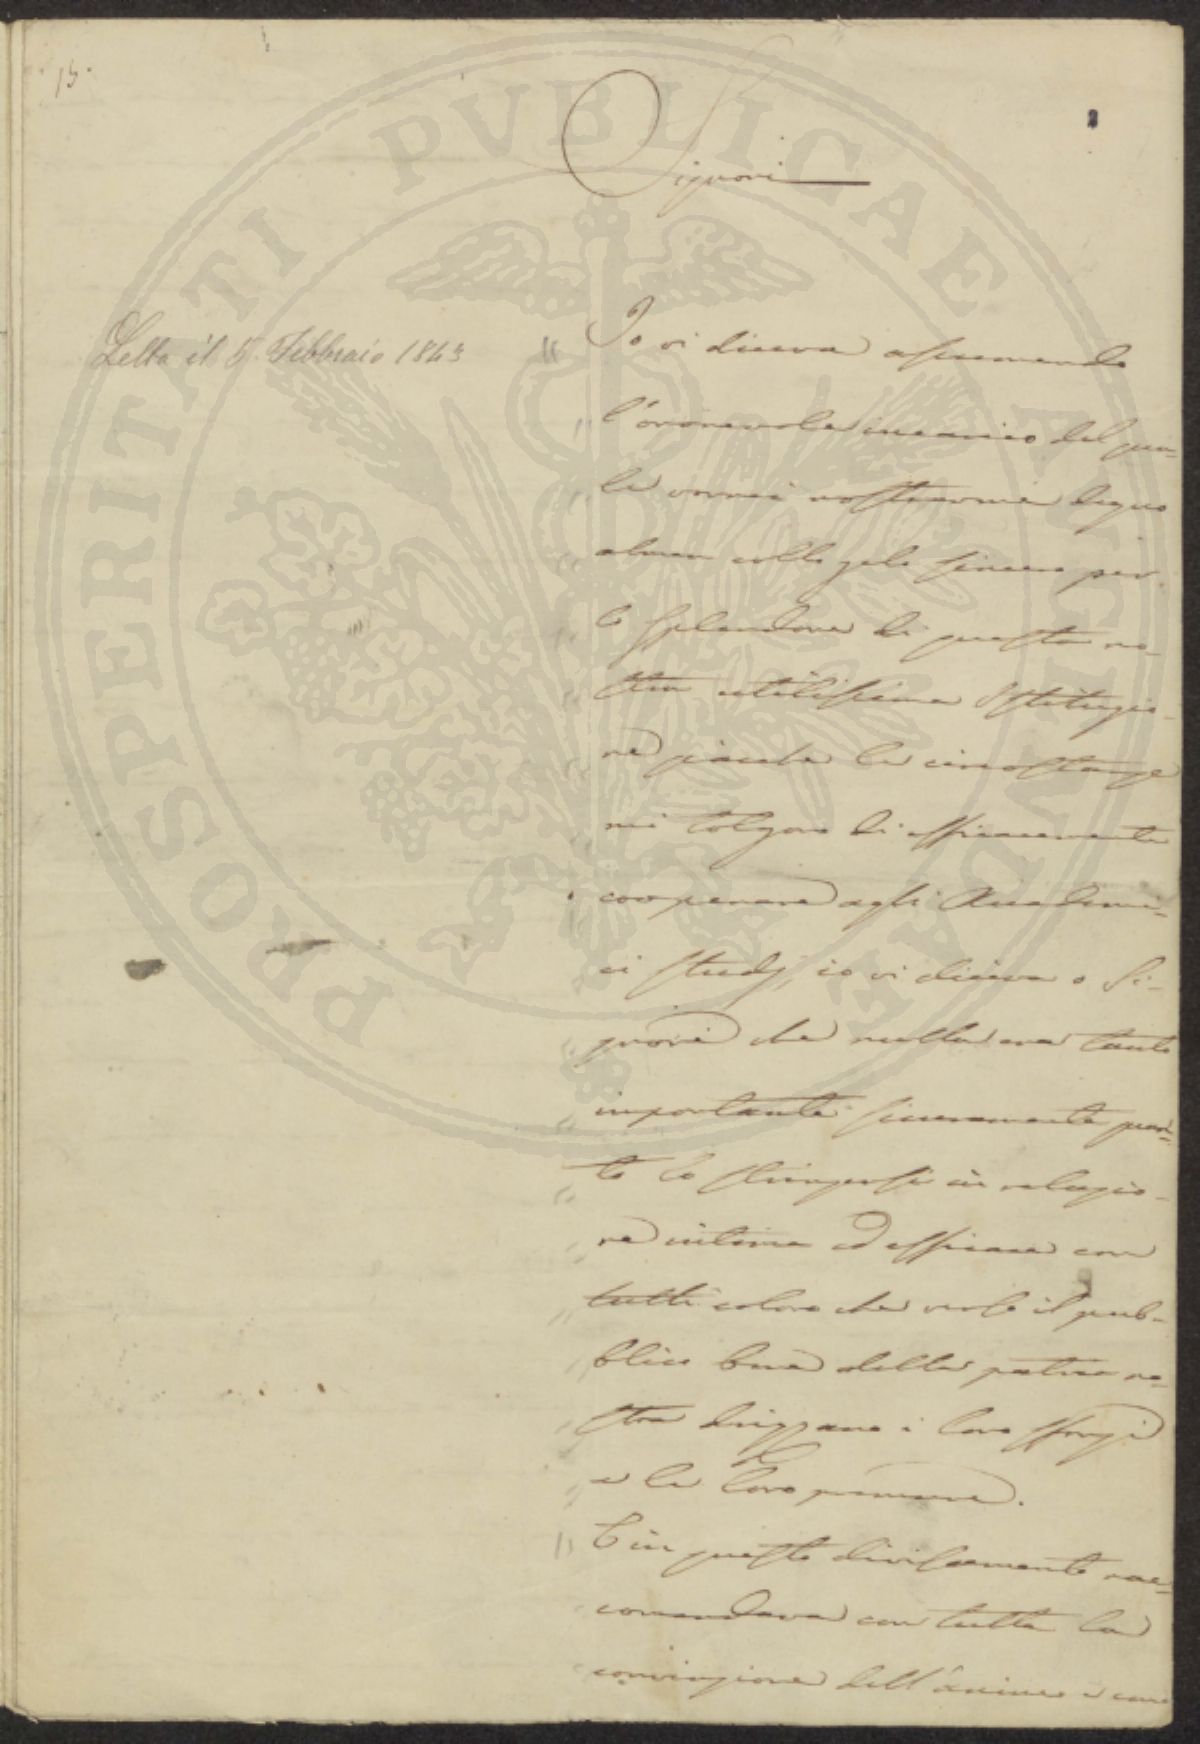 15.
Signori
Letta il 5 Febbraio 1843
Io vi diceva assumendo
l'onorevole incarico del qua-
le vorrei mostrarmi degno
almen collo zelo sincero per
lo splendore di questa no-
stra utilissima Istituzio-
ne giacché le circostanze
mi tolgono di efficacemente
cooperare agli Accademi-
ci studj, io vi diceva o Si-
gnori che nulla era tanto
importante sicuramente quan-
to lo stringersi in relazio-
ne intima ed efficace con
tutti coloro che verso il pub-
blico bene della patria no-
stra dirizzano i loro sforzi
e le loro premure.
E in questo divisamento rac-
comandava con tutta la
convinzione dell'animo e con
PROSPERITATI PVBLICAE AVGENDAE